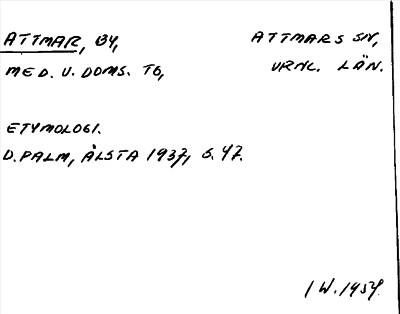 ATTMAR, BY, ATTMARS SN,
MED. U. DOMS. TG, VRNL. LÄN.
ETYMOLOGI.
D. PALM, ÅLSTA 1937, S. 47.
I W. 1957